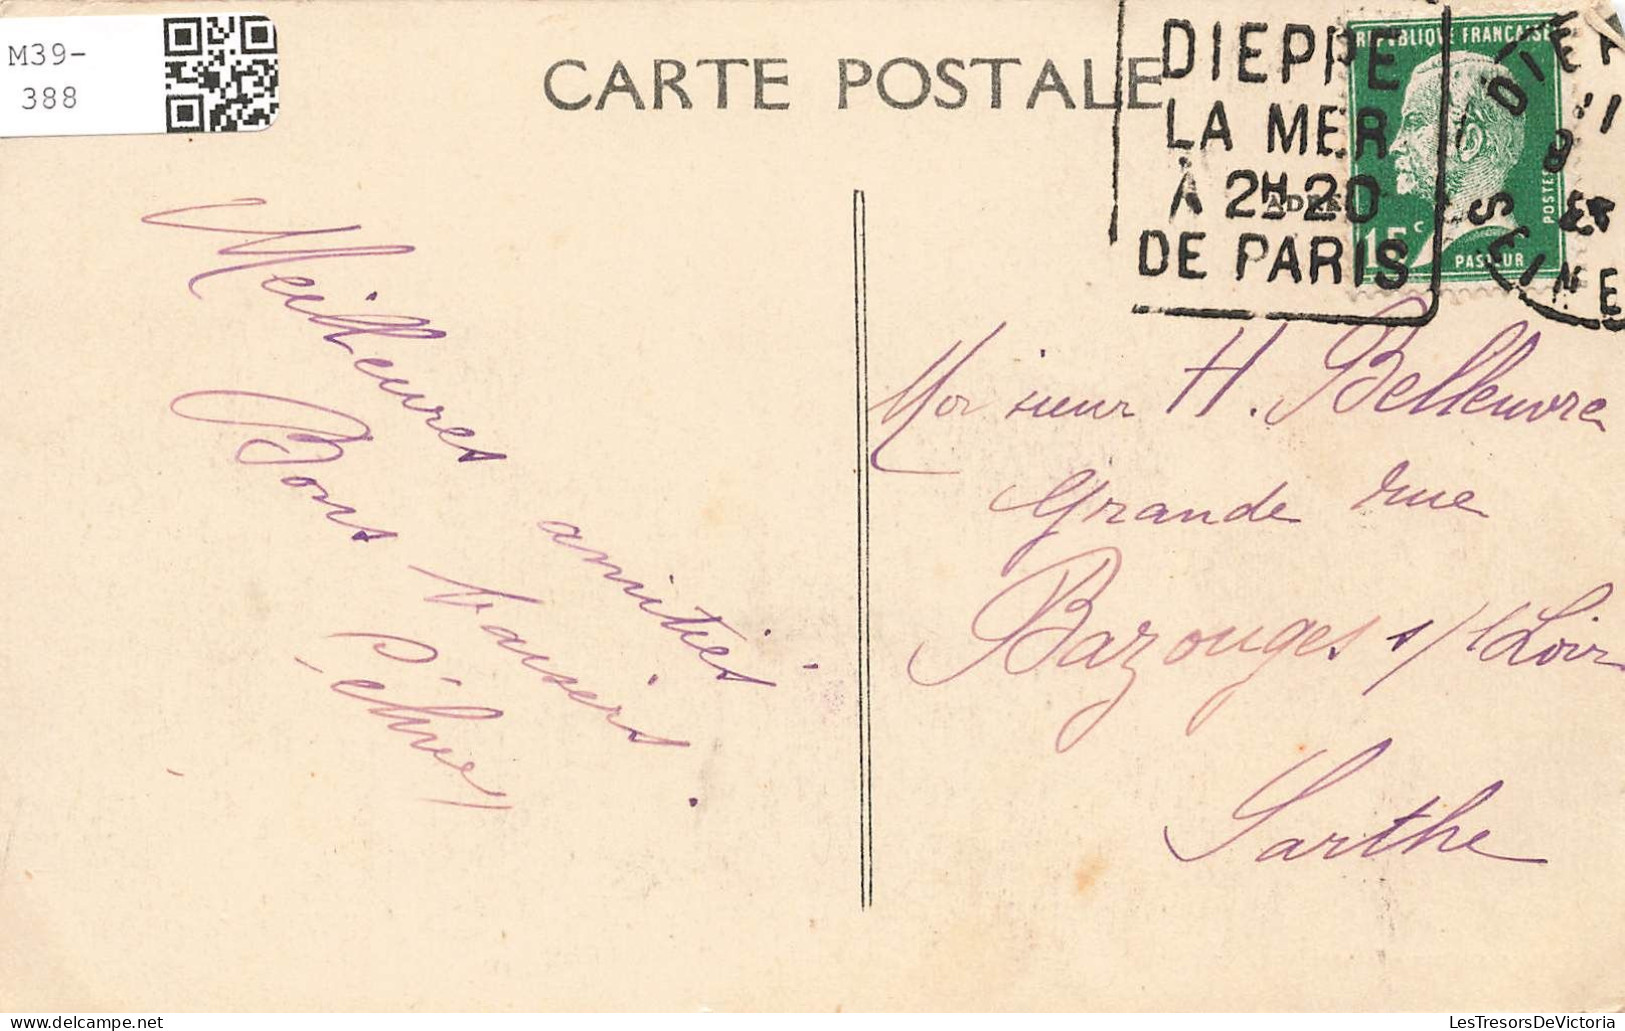 M39-
388
CARTE POSTALE
DIEPPE
LA MER
À 2H20
DE PARIS
REPUBLIQUE FRANÇAISE
POSTES
15c
PASTEUR
SEINE
Meilleures amitiés
Bons baisers
Monsieur H. Belleuvre
Grande rue
Bazouges s/ le Loir
Sarthe
LesTresorsDeVictoria (FR)
delcampe.net